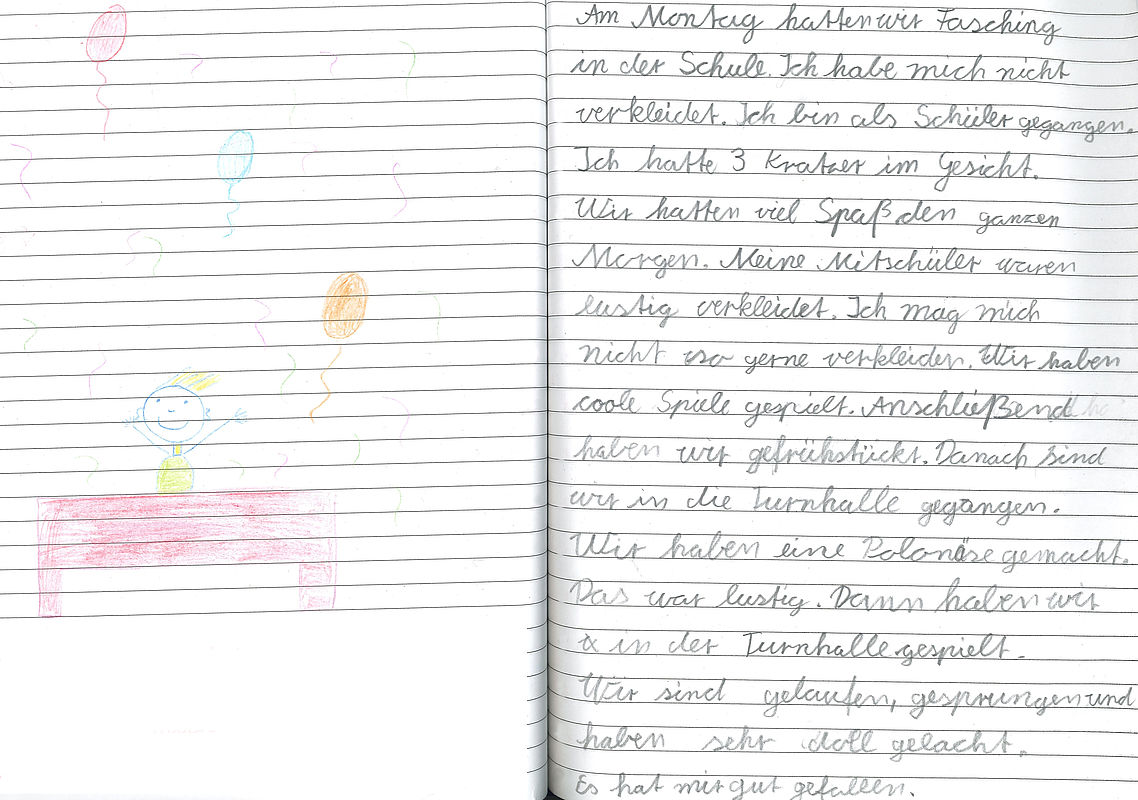 Am Montag hatten wir Fasching
in der Schule. Ich habe mich nicht
verkleidet. Ich bin als Schüler gegangen.
Ich hatte 3 Kratzer im Gesicht.
Wir hatten viel Spaß den ganzen
Morgen. Meine Mitschüler waren
lustig verkleidet. Ich mag mich
nicht so gerne verkleiden. Wir haben
coole Spiele gespielt. Anschließend
haben wir gefrühstückt. Danach sind
wir in die Turnhalle gegangen.
Wir haben eine Polonäse gemacht.
Das war lustig. Dann haben wir
in der Turnhalle gespielt.
Wir sind gelaufen, gesprungen und
haben sehr doll gelacht.
Es hat mir gut gefallen.